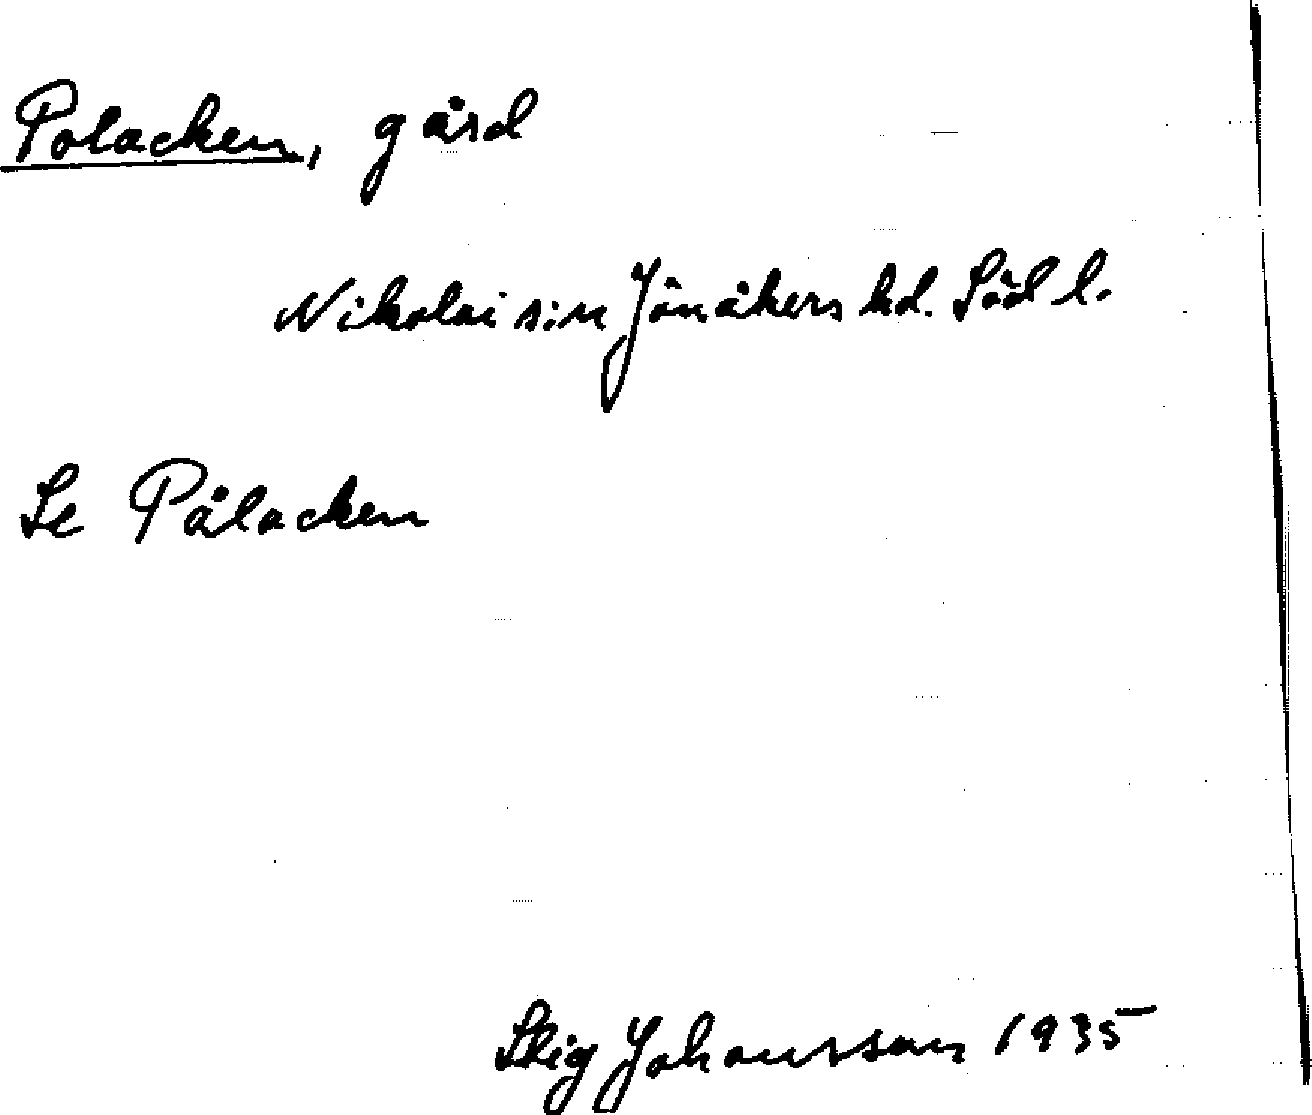 Polacken, gård
Nikolai s:n Jönåkers hd. Söd l.
Se Pålacken
Stig Johansson 1935